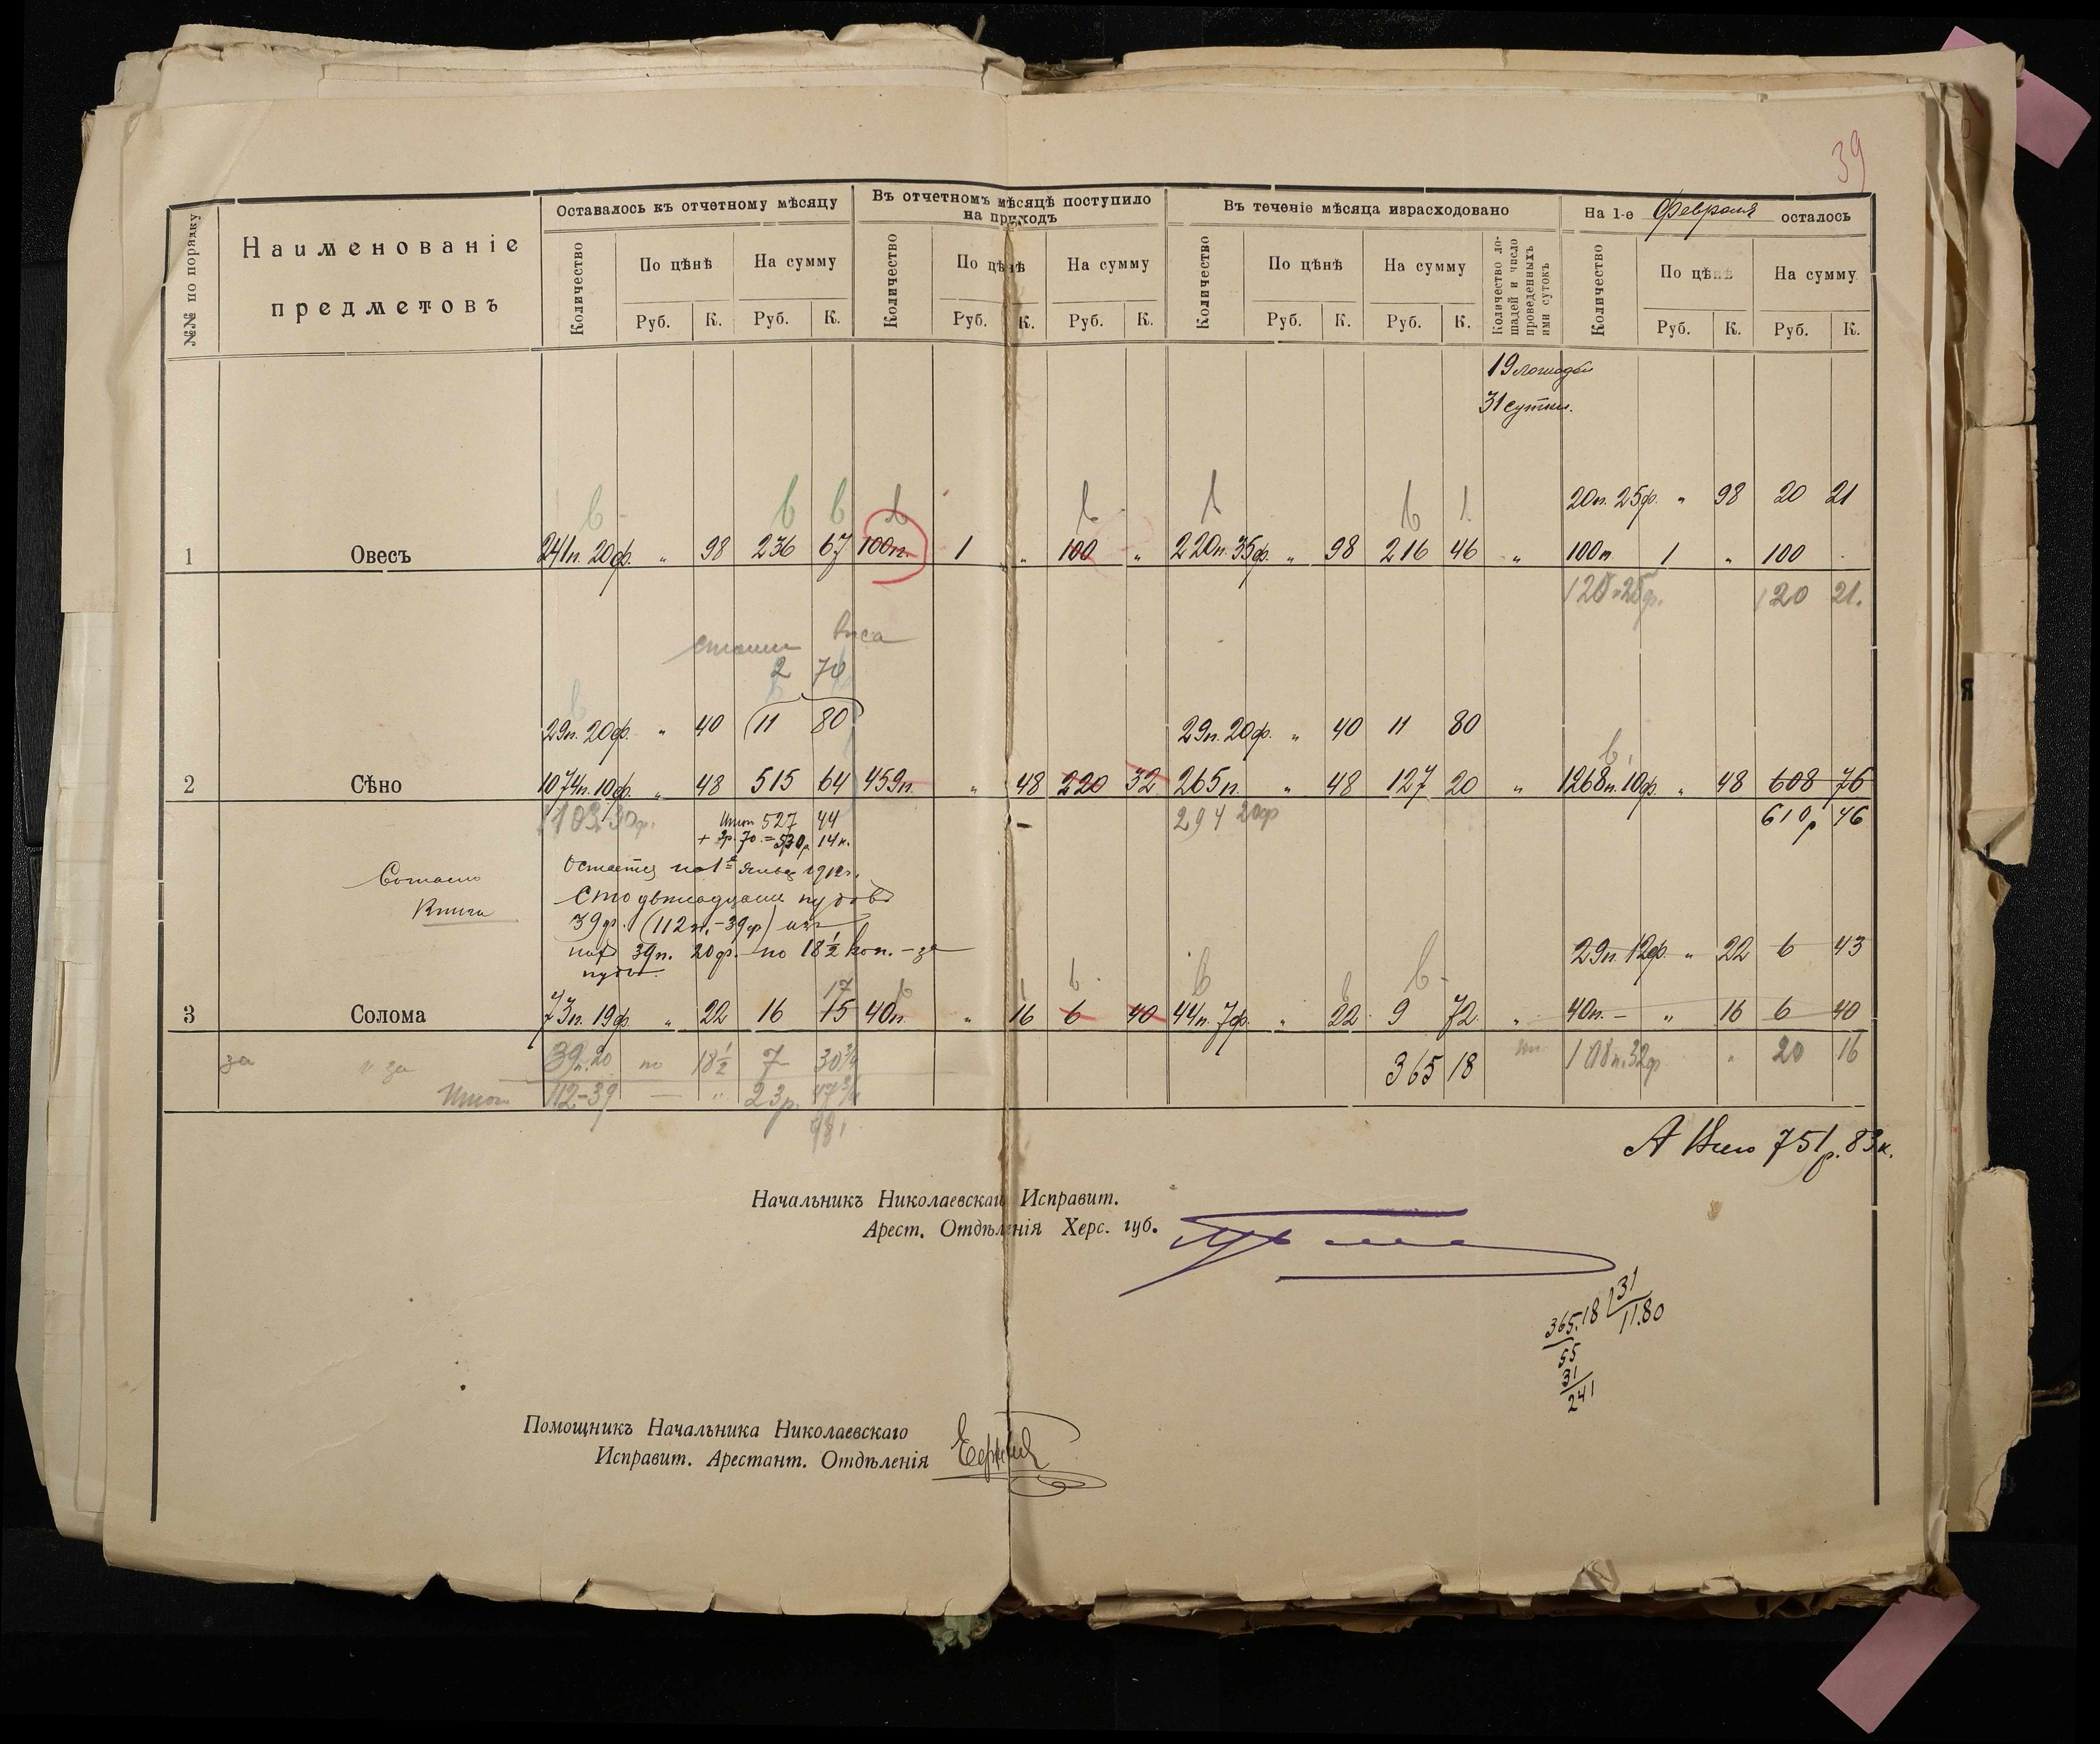 39
№№ по порядку
Наименованіе предметовъ
Оставалось къ отчетному мѣсяцу
Въ отчетномъ мѣсяцѣ поступило на приходъ
Въ теченіе мѣсяца израсходовано
На 1-е Февраля осталось
Количество По цѣнѣ На сумму Количество По цѣнѣ На сумму Количество По цѣнѣ На сумму Количество лошадей и число проведенныхъ ими сутокъ Количество По цѣнѣ На сумму
Руб. К. Руб. К. Руб. К. Руб. К. Руб. К. Руб. К. Руб. К. Руб. К.
19 лошадей
31 сутки.
20п. 25ф. " 98 20 21
1 Овесъ 241п. 20ф. " 98 236 67 100п. 1 " 100 " 220п. 35ф. " 98 216 46 " 100п 1 " 100
120п 25ф. 120 21.
2 70
29п. 20ф. " 40 11 80 29п. 20ф. " 40 11 80
2 Сѣно 1074п. 10ф. " 48 515 64 459п. " 48 220 32 265п. " 48 127 20 " 1268п. 10ф. " 48 608 76
1103. 30ф. Итого 527 44 294 20ф 610р 46
+ 2р. 70. = 530р 14к.
Согласно
Книги
39ф. (112п. - 39ф)
39п. 20ф. по 18½ коп. - за
пудъ.
29п. 12ф. " 22 6 43
17
3 Солома 73п. 19ф. " 22 16 15 40п. " 16 6 40 44п. 7ф. " 22 9 72 " 40п. - " 16 6 40
за 39п. 20 по 18½ 7 30¾ 365 18 108п. 32ф " 20 16
Итого 112-39 - " 23р. 47¾
48
А Всего 751р. 83к.
Начальникъ Николаевскаго Исправит.
Арест. Отдѣленія Херс. губ.
365.18 31
11.80
55
31
241
Помощникъ Начальника Николаевскаго
Исправит. Арестант. Отдѣленія